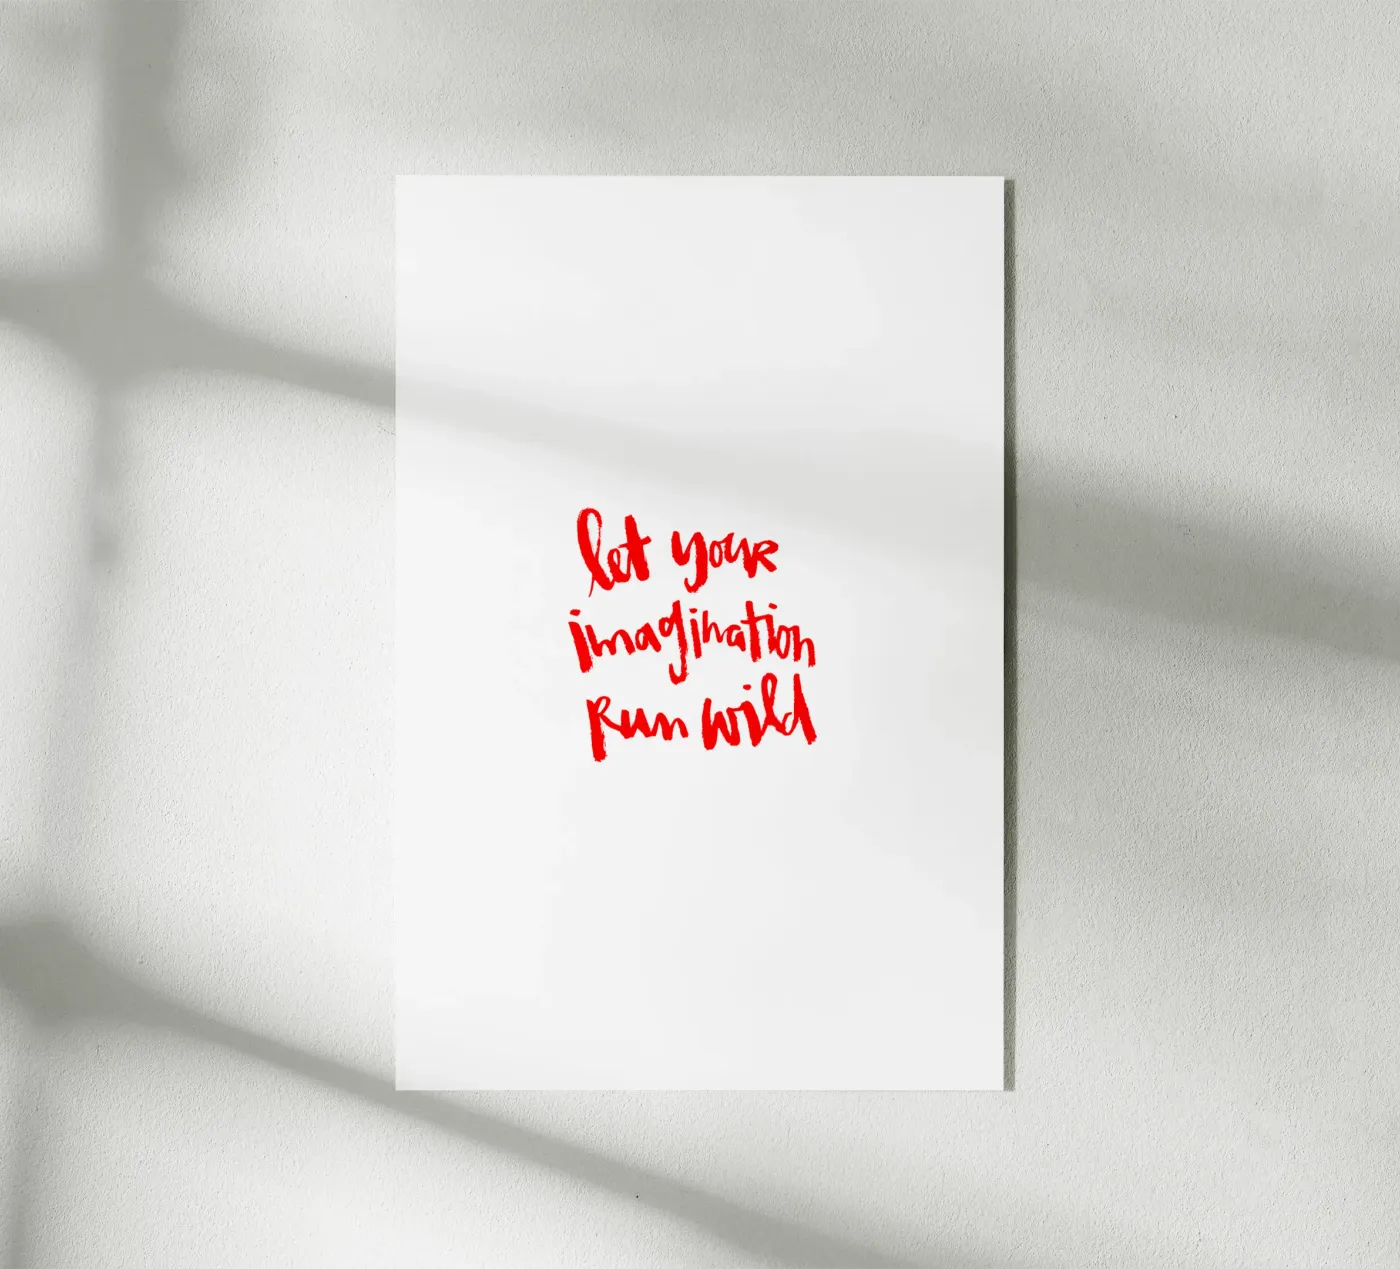 let your
imagination
Run wild